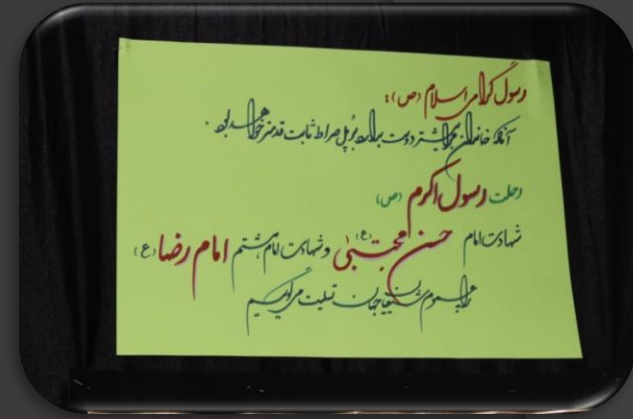 رسول گرامی اسلام (ص):
آنکه خاندانم را بیشتر دوست بدارد بر پل صراط ثابت قدمتر خواهد بود.
رحلت رسول اکرم (ص)
شهادت امام حسن مجتبی (ع) و شهادت امام هشتم امام رضا (ع)
را به عموم شیعیان جهان تسلیت می‌گوییم